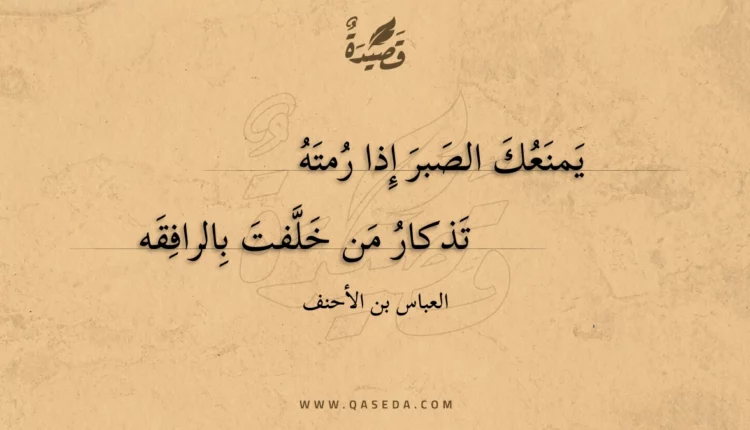 قَصِيدَةٌ
يَمنَعُكَ الصَبرَ إِذا رُمتَهُ
تَذكارُ مَن خَلَّفتَ بِالرافِقَه
العباس بن الأحنف
WWW.QASEDA.COM